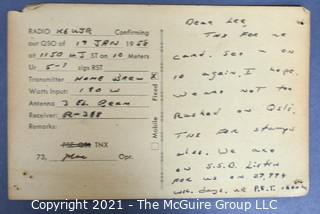 RADIO K6WJR Confirming
our QSO of 19 JAN 1958
at 1150 M S T on 10 Meters
Ur 5-9 sigs RST
Transmitter HOME BREW
Watts Input: 180 W
Antenna 3 EL BEAM
Receiver: R-388
Remarks:
PSE QSL TNX
73, Opr.
Fixed X
Mobile
Dear Lee,
TNX FOR nc
card. See u on
10 again, I hope.
We are not too
Rushed on QSLs.
TNX FOR stamps
also. We are
on S.S.B. Listen
FOR us on 27,994
wk. days, at P.S.T.
Copyright © 2021 - Omega Auction Corp.